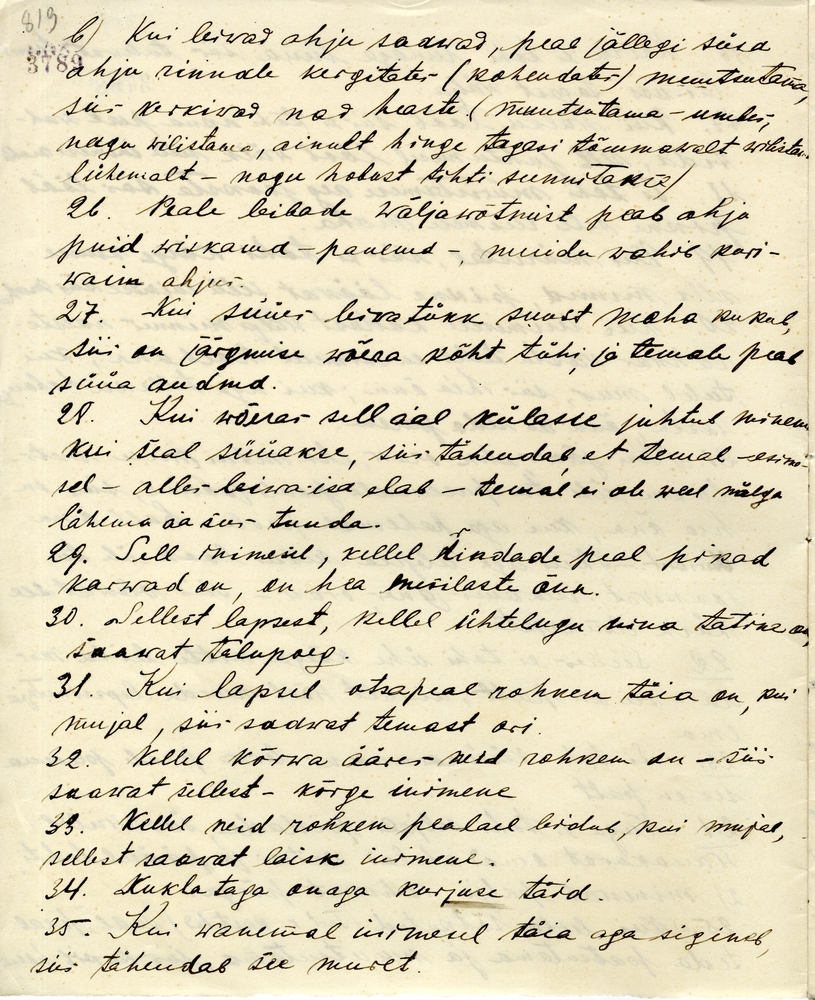 819
3789
b) Kui leiwad ahju saawad, peab jällegi süsa
ahju rinnale kergitates (kohendates) muutsutama,
siis kerkiwad nad heaste. (muutsutama – umbes,
nagu wilistama, ainult hinge tagasi tõmmawalt wilistam.
lühemalt – nagu hobust tihti sunnitakse)
26. Peale leibade wäljawõtmist peab ahju
puid wiskama – panema –, muidu wahib kuri-
waim ahjus.
27. Kui süües leiwatükk suust maha kukub,
siis on järgmise wõera kõht tühi, ja temale peab
süüa andma.
28. Kui wõeras sell ääl külasse juhtub minema
kui seal süüakse, siis tähendab, et temal – esimi-
sel – alles leiwa-isa elab – temal ei ole weel nälga
lähema aa sees tunda.
29. Sell inimesel, kellel rindade peal pikad
karwad on, on hea mesilaste õnn.
30. Sellest lapsest, kellel ühtelugu nina tatine on,
saawat talupoeg.
31. Kui lapsel otsapeal rohkem täia on, kui
mujal, siis saawat temast ori.
32. Kellel kõrwa ääres neid rohkem on – siis
saawat sellest – kõrge inimene
33. Kellel neid rohkem pealael leidub, kui mujal,
sellest saawat laisk inimene.
34. Kukla taga on aga kurjuse täid.
35. Kui wanemal inimesel täia aga sigineb,
siis tähendab see muret.